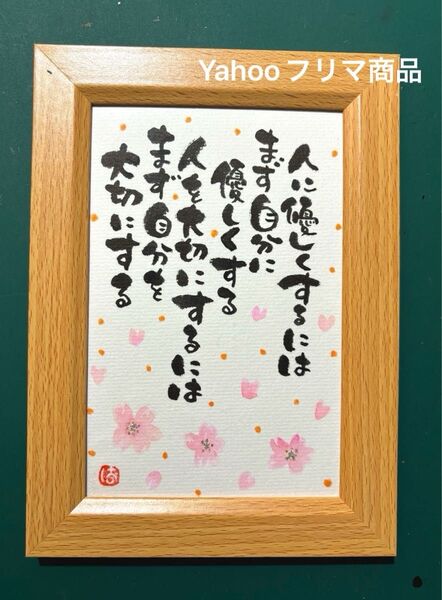 Yahooフリマ商品
人に優しくするには
まず自分に
優しくする
人を大切にするには
まず自分を
大切にする